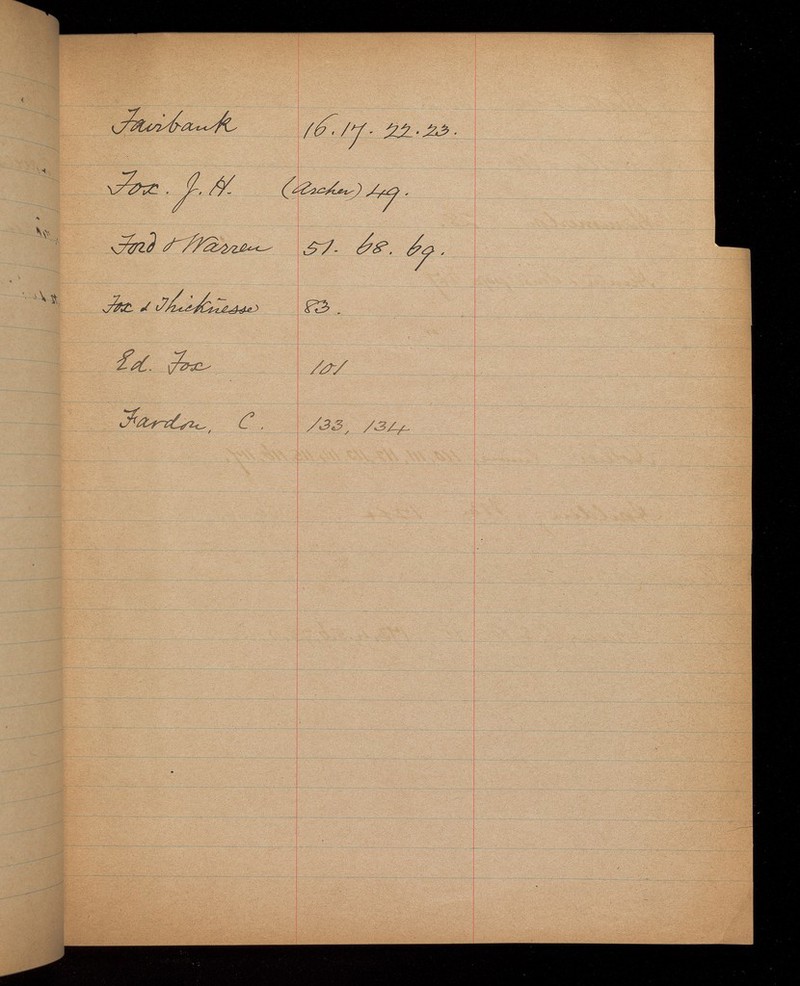 Fairbank 16. 17. 22. 23.
Fox. J. H. (Archer) 49.
Ford & Warren 51. 68. 69.
Fox & Thicknesse 83.
Ed. Fox 101
Fardon, C. 133, 134